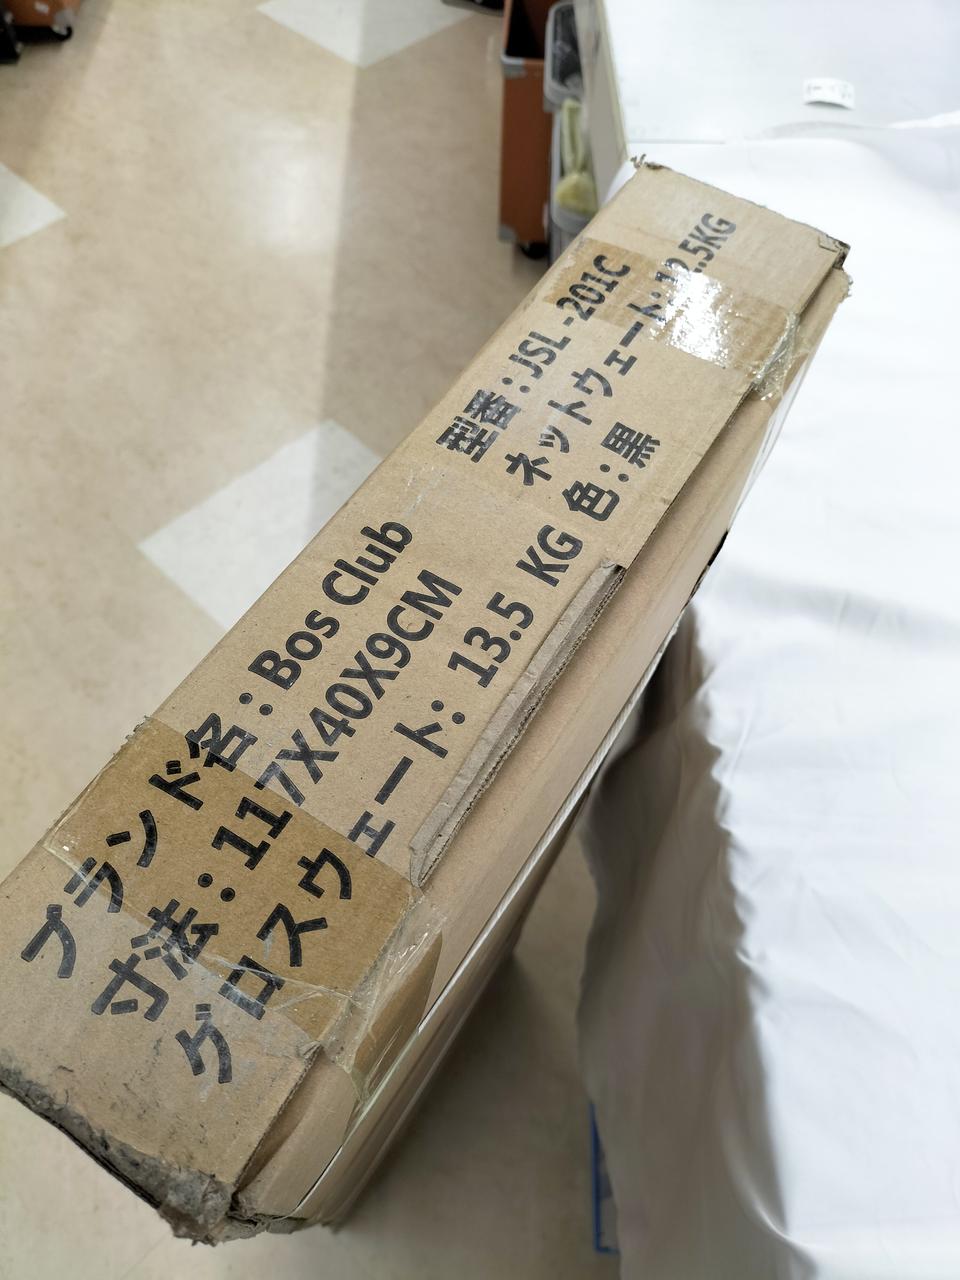 ブランド名：Bos Club
型番：JSL-201C
寸法：117X40X9CM
ネットウェート：12.5KG
グロスウェート：13.5 KG
色：黒